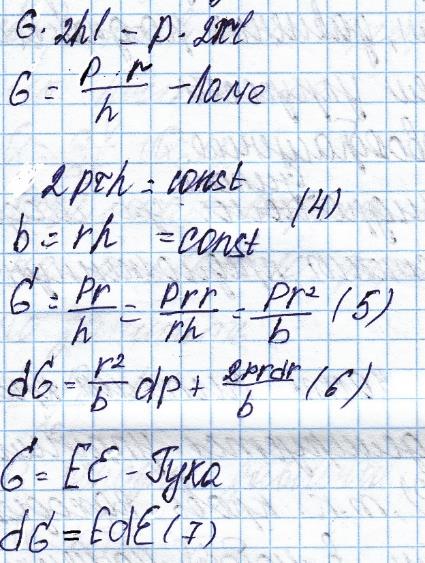 б · 2hl = p · 2rl
б = p · r / h - Ламе
2prh = const
(4)
b = rh = const
б = pr/h = prr/rh = pr²/b (5)
dб = r²/b dp + 2prdr/b (6)
б = EƐ - Гука
dб = EdƐ (7)